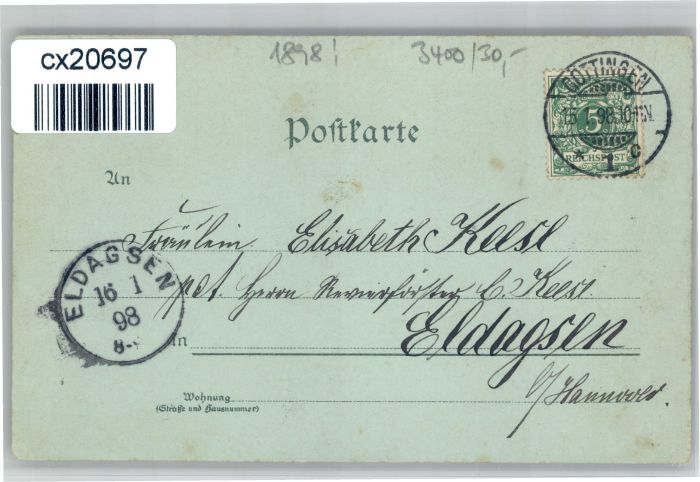 cx20697
1898!
3400/30,-
GÖTTINGEN
15 1 98.10-11N.
* 1 c
5
REICHSPOST
Postkarte
An
Fräulein Elisabeth Keesl
pct. Herrn Revierförster C. Keesl.
ELDAGSEN
16 1
98
8-
in Eldagsen
b/Hannover.
Wohnung
(Straße und Hausnummer)